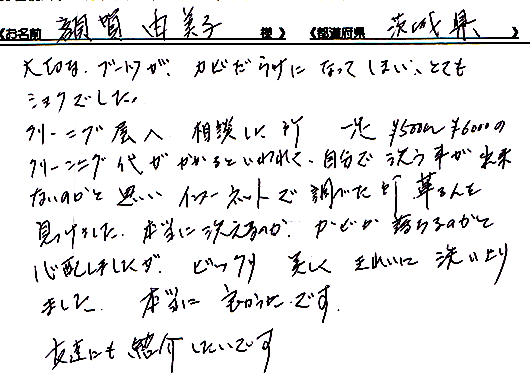 《お名前 須賀 由美子 様》《都道府県 茨城県 》
大切な、ブーツが、カビだらけになってしまい、とても
ショックでした。
クリーニング屋へ 相談した所 一足 ¥5000〜¥6000の
クリーニング代がかかるといわれて、自分で洗う事が出来
ないのかと思い インターネットで調べた所 革るんを
見つけました。本当に洗えるのか、カビが落ちるのかと
心配しましたが、ビックリ 美しく きれいに 洗い上り
ました。本当に 良かったです。
友達にも紹介したいです